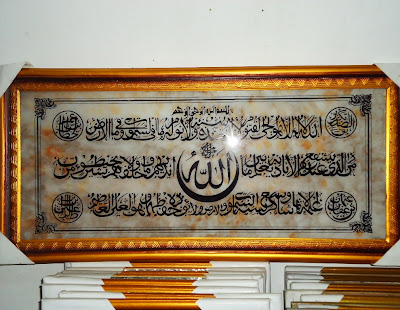 بسم الله الرحمن الرحيم
الله لا إله إلا هو الحي القيوم لا تأخذه سنة ولا نوم له ما في السموات وما في الأرض
من ذا الذي يشفع عنده إلا بإذنه يعلم ما بين أيديهم وما خلفهم ولا يحيطون بشيء من
الله
علمه إلا بما شاء وسع كرسيه السموات والأرض ولا يؤده حفظهما وهو العلي العظيم